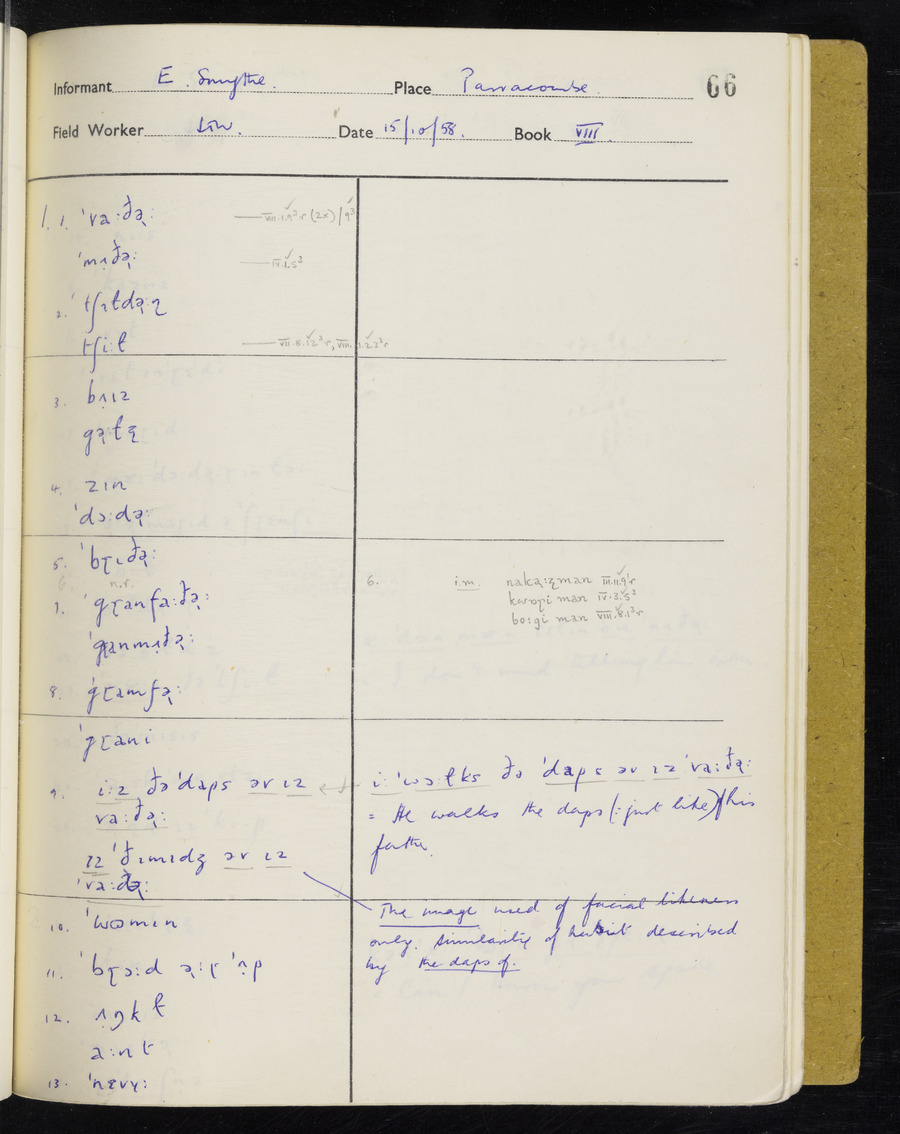 Informant E. Smythe. Place Parracombe. 66
Field Worker Date 15/10/58. Book VIII
1. 1. ˈvaːðə˞ː — VIII.1.9³r (2x)/9³
ˈmʌðə˞ː — IV.1.5³
2. ˈtʃɪɫdə˞ɳ
tʃiːɫ — VII.8.12³r, VIII.1.22³r
3. bʌɪz
gə˞ɫz̢
4. zɪn
ˈdɔːdə˞ː
5. ˈbɽɪðə˞ː
6. n.r. 6. i.m. nakə˞ːz̢man III.11.9³r
man IV.3.5³
boːgi man VIII.8.1³r
7. ˈgɽanfaːðə˞ː
ˈgɽanmʌðə˞ː
8. ˈgɽamfə˞ː
ˈgɽani
9. iːz ðə ˈdaps əv ɪz iː ˈwɔːɫks ðə ˈdaps əv ɪz ˈvaːðə˞ː
vaːðə˞ː = He walks the daps (: just like) his
father.
ɪz ˈðɪmɪdʒ əv ɪz
ˈvaːðə˞ː The image used of facial likeness
10. ˈwʊmɪn only. Similarity of habit described
11. ˈbɽɔːd ə˞ːɽ ˈʌp by the daps of.
12. ʌŋkɫ
aːnt
13. ˈnɛvyː